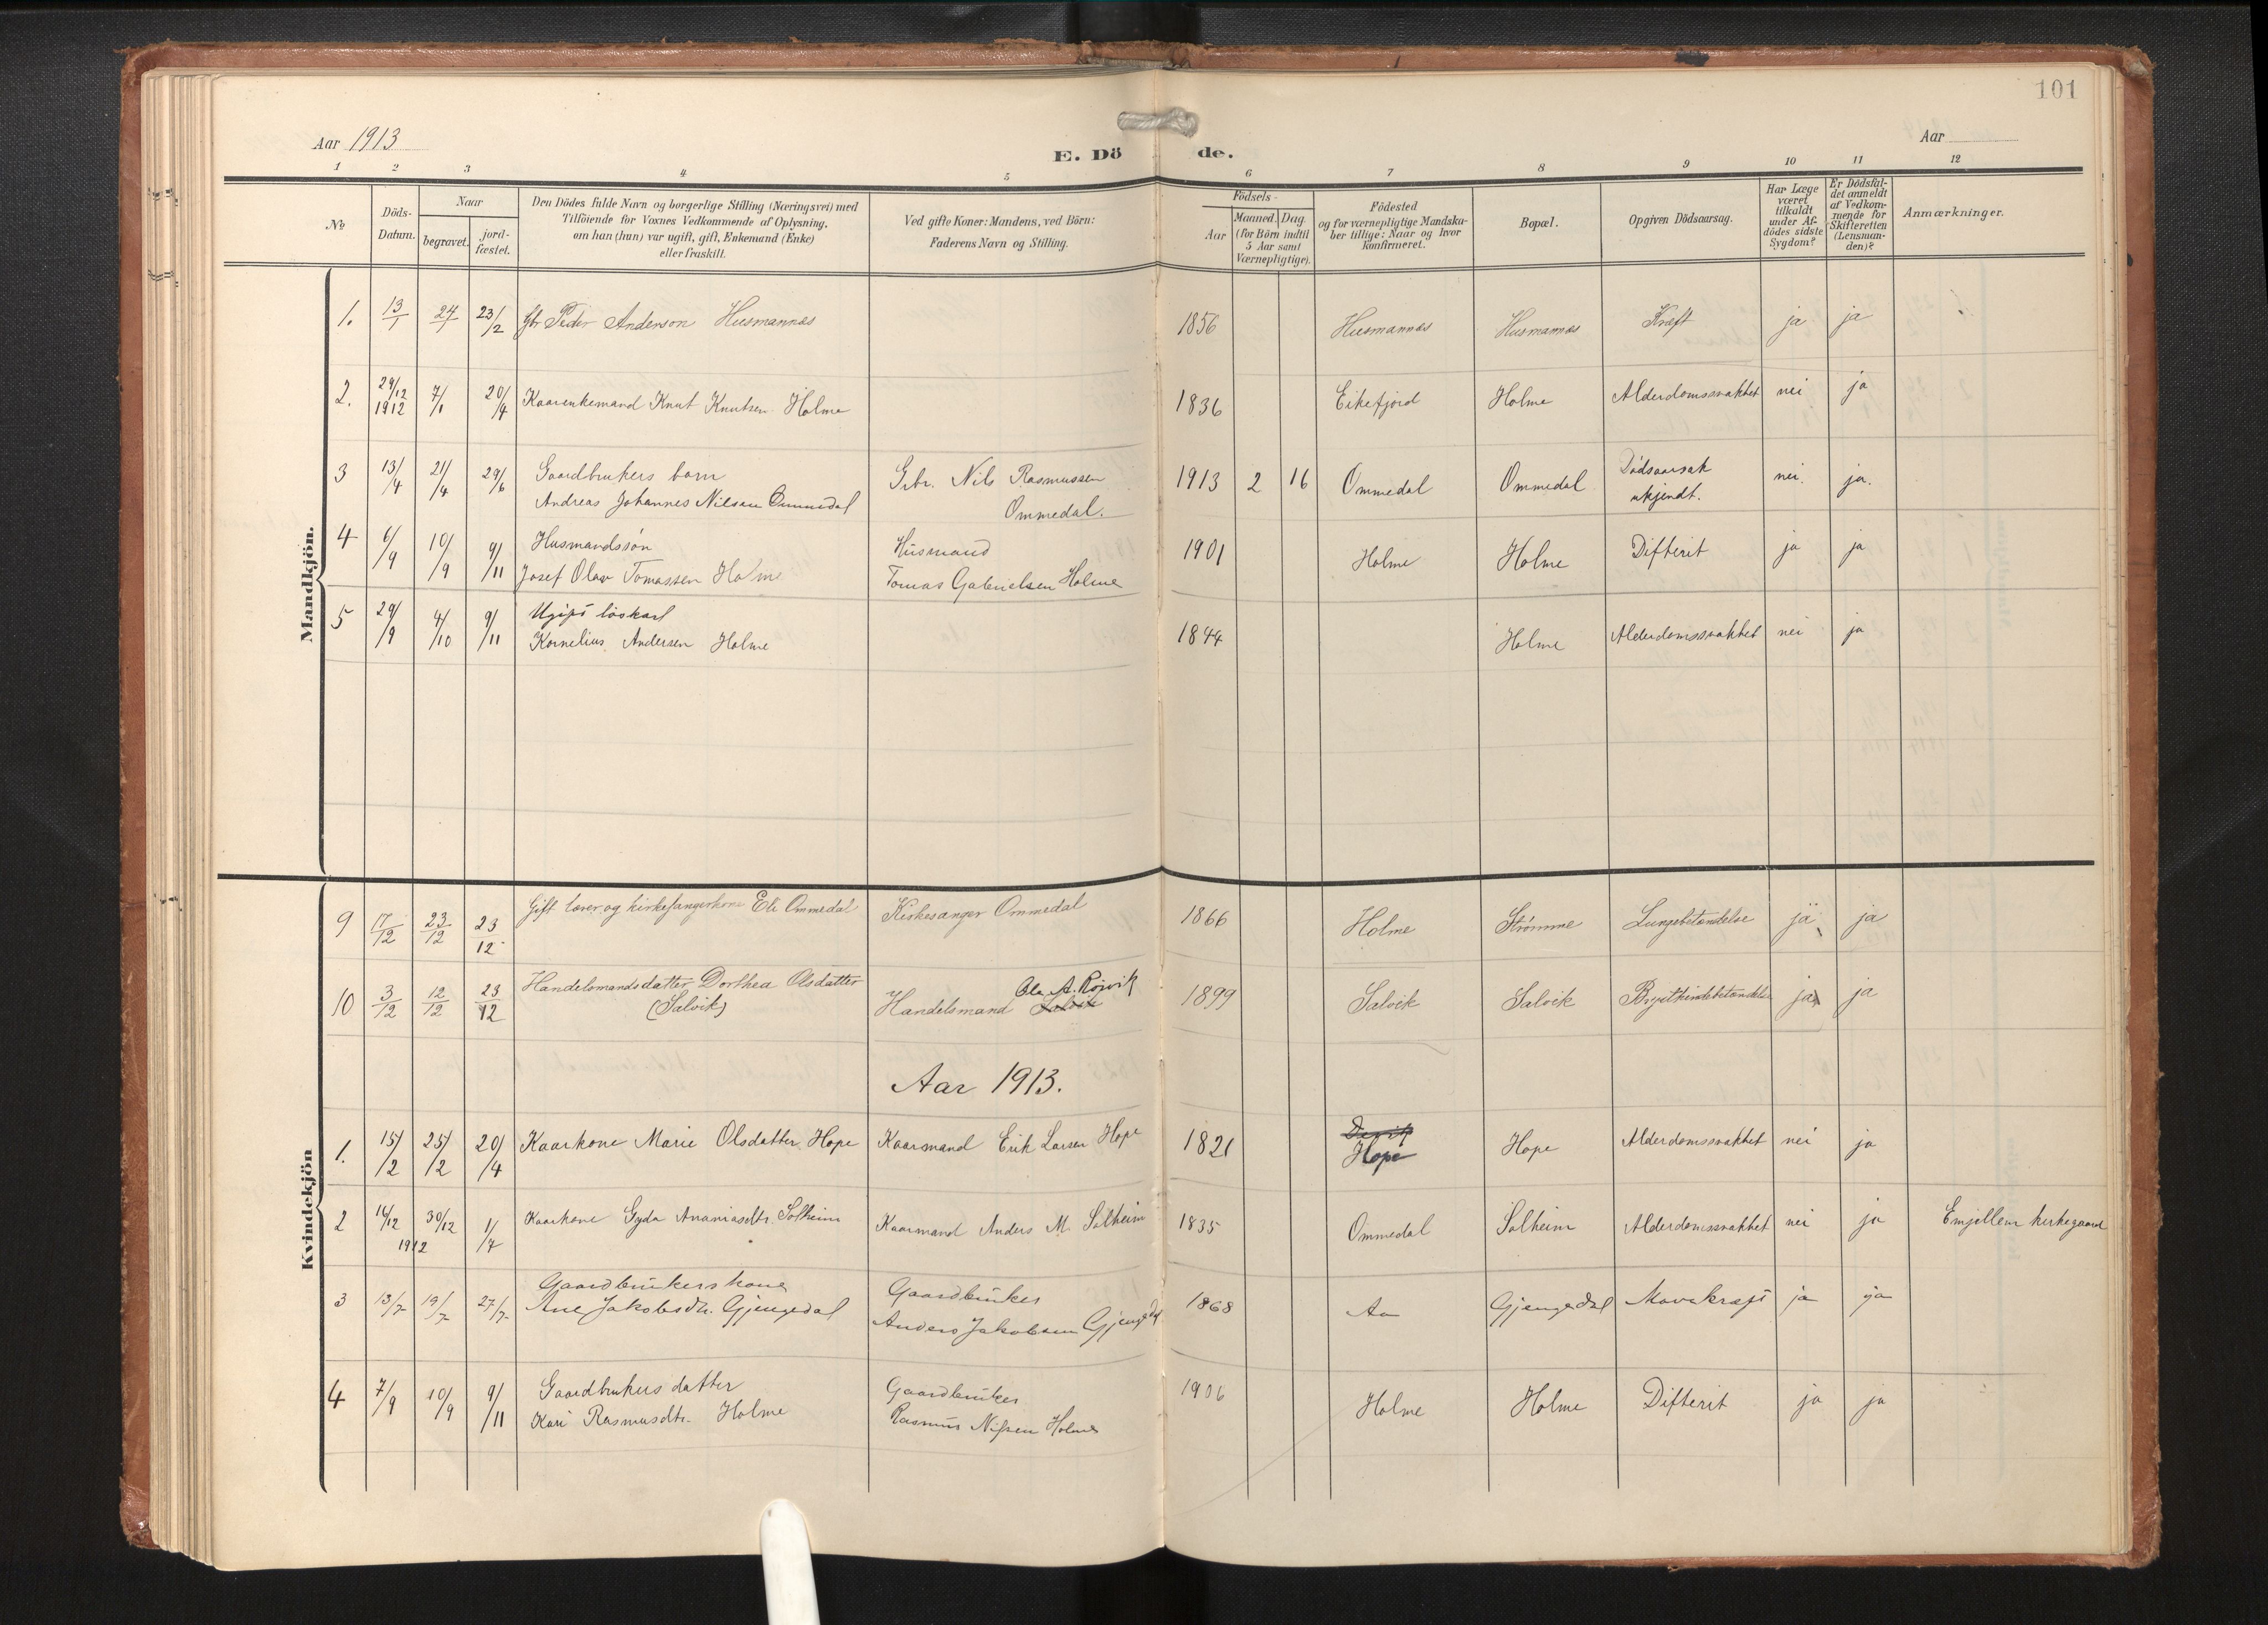 101
Aar 1913
Aar
E. Dö de.
1 2 3 4 5 6 7 8 9 10 11 12
No.
Döds-Datum.
Naar
begravet.
jord-fæstet.
Den Dödes fulde Navn og borgerlige Stilling (Næringsvei) med
Tilföiende for Voxnes Vedkommende af Oplysning,
om han (hun) var ugift, gift, Enkemand (Enke)
eller fraskilt.
Ved gifte Koner: Mandens, ved Börn:
Faderens Navn og Stilling.
Födsels-
Aar
Maaned. Dag
(for Börn indtil
5 Aar samt
Værnepligtige).
Födested
og for værnepligtige Mandska-
ber tillige: Naar og hvor
konfirmeret.
Bopæl.
Opgiven Dödsaarsag.
Har Læge
været
tilkaldt
under Af-
dödes sidste
Sygdom?
Er Dödsfal-
det anmeldt
af Vedkom-
mende for
Skifteretten
(Lensman-
den)?
Anmærkninger.
Mandkjön.
1. 13/1 24/1 23/2 Gbr Peder Anderson Husmannæs 1856 Husmannæs Husmannæs Kræft ja ja
2. 29/12 1912 7/1 20/4 Kaarenkemand Knut Knutsen Holme 1836 Eikefjord Holme Alderdomssvakhet nei ja
3 13/4 21/4 29/6 Gaardbrukers barn
Andreas Johannes Nilsen Ommedal
Grbr. Nils Rasmussen
Ommedal.
1913 2 16 Ommedal Ommedal Dødsaarsak
ukjendt.
nei. ja.
4 6/9 10/9 9/11 Husmandssøn
Josef Olav Tomassen Holme
Husmand
Tomas Gabrielsen Holme
1901 Holme Holme Difterit ja ja
5 29/9 4/10 9/11 Ugift løskarl
Kornelius Andersen Holme
1844 Holme Alderdomssvakhet nei ja
Kvindekjön
9 17/12 23/12 23/12 Gift lærer og kirkesangerkone Eli Ommedal Kirkesanger Ommedal 1866 Holme Strømme Lungebetændelse ja ja
10 3/12 12/12 23/12 Handelsmandsdatter Dorthea Olsdatter
(Salvik)
Ole A. Røivik
Handelsmand Salvik
1899 Salvik Salvik Brysthindebetændelse ja ja
Aar 1913.
1. 15/2 25/2 20/4 Kaarkone Marie Olsdatter Hope Kaarmand Erik Larsen Hope 1821
Hope Hope Alderdomssvakhet nei ja
2 16/12 30/12 1912 1/4 Kaarkone Gyda Ananiasdtr. Solheim Kaarmand Anders M. Solheim 1835 Ommedal Solheim Alderdomssvakhet nei ja Emjellem kirkegaard
3 13/7 19/7 27/7 Gaardbrukers kone
Ane Jakobsdtr. Gjengedal
Gaardbruker
Anders Jakobsen Gjengedal
1868 Aa Gjengedal Mavekræft ja ja
4 7/9 10/9 9/11 Gaardbrukers datter
Kari Rasmusdtr. Holme
Gaardbruker
Rasmus Nilsen Holme
1906 Holme Holme Difterit ja ja